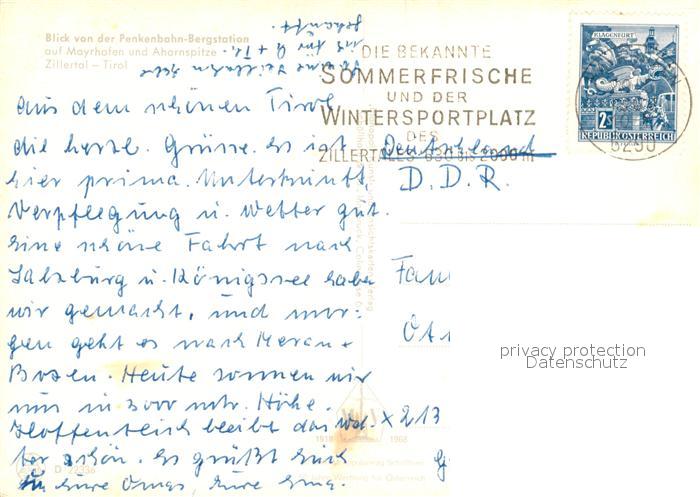 Blick von der Penkenbahn-Bergstation
auf Mayrhofen und Ahornspitze
Zillertal – Tirol
DIE BEKANNTE
SOMMERFRISCHE
UND DER
WINTERSPORTPLATZ
DES
ZILLERTALES 630 BIS 2000 m
KLAGENFURT
2S
REPUBLIK ÖSTERREICH
6290
aus dem schönen Tirol
die herzl. Grüsse. Es ist
hier prima. Unterkunft
Verpflegung u. Wetter gut.
Eine schöne Fahrt nach
Salzburg u. Königssee haben
wir gemacht, und mor-
gen geht es nach Meran +
Bozen. Heute sonnen wir
uns in 3000 mtr. Höhe.
Hoffentlich bleibt das Wet-
ter schön. Es grüßt Euch
Eure Omas, Eure
Deutschland
D.D.R.
Fam
x 213
1918 1968
privacy protection
Datenschutz